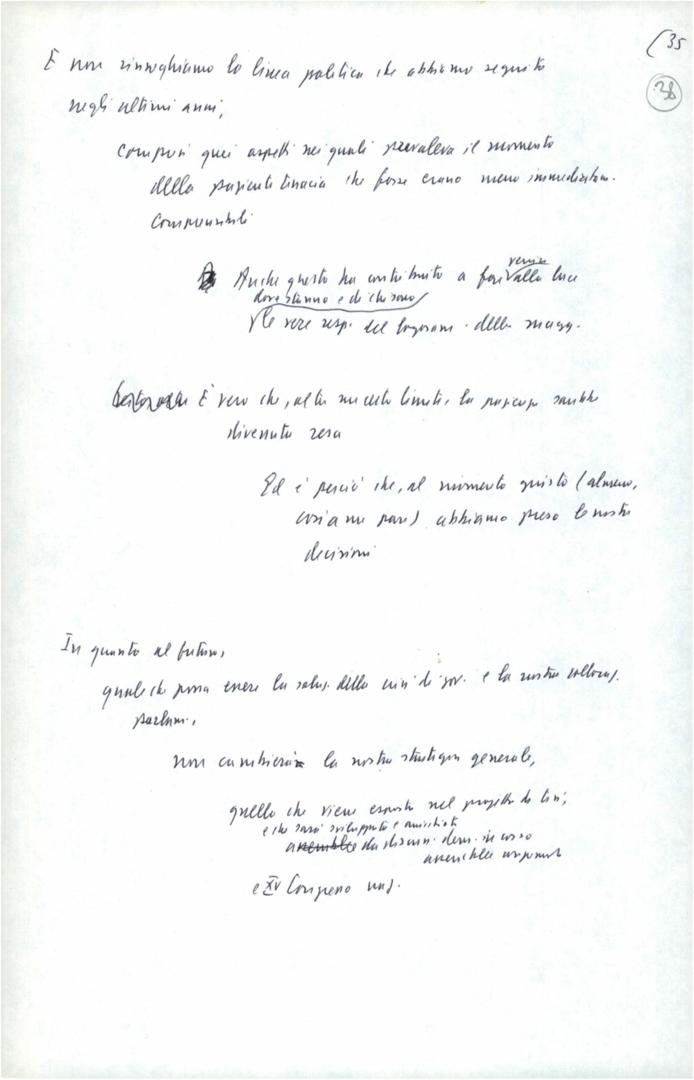 (35
38
E non rinneghiamo la linea politica che abbiamo seguito
negli ultimi anni,
compresi quei aspetti nei quali prevaleva il momento
della paziente tenacia che forse erano meno immediatam.
comprensibili
Anche questo ha contribuito a far venire alla luce
dove stanno e di chi sono
le vere resp. del logoram. della magg.
È vero che, oltre un certo limite, la pazienza sarebbe
divenuta resa
Ed è perciò che, al momento giusto (almeno,
così a me pare) abbiamo preso le nostre
decisioni
In quanto al futuro,
quale che possa essere la soluz. della crisi di gov. e la nostra collocaz.
parlam.,
non cambierà la nostra strategia generale,
quella che viene esposta nel progetto di tesi,
e che sarà sviluppata e arricchita
da discuss. dem. in corso
assemblee
e XV Congresso naz.